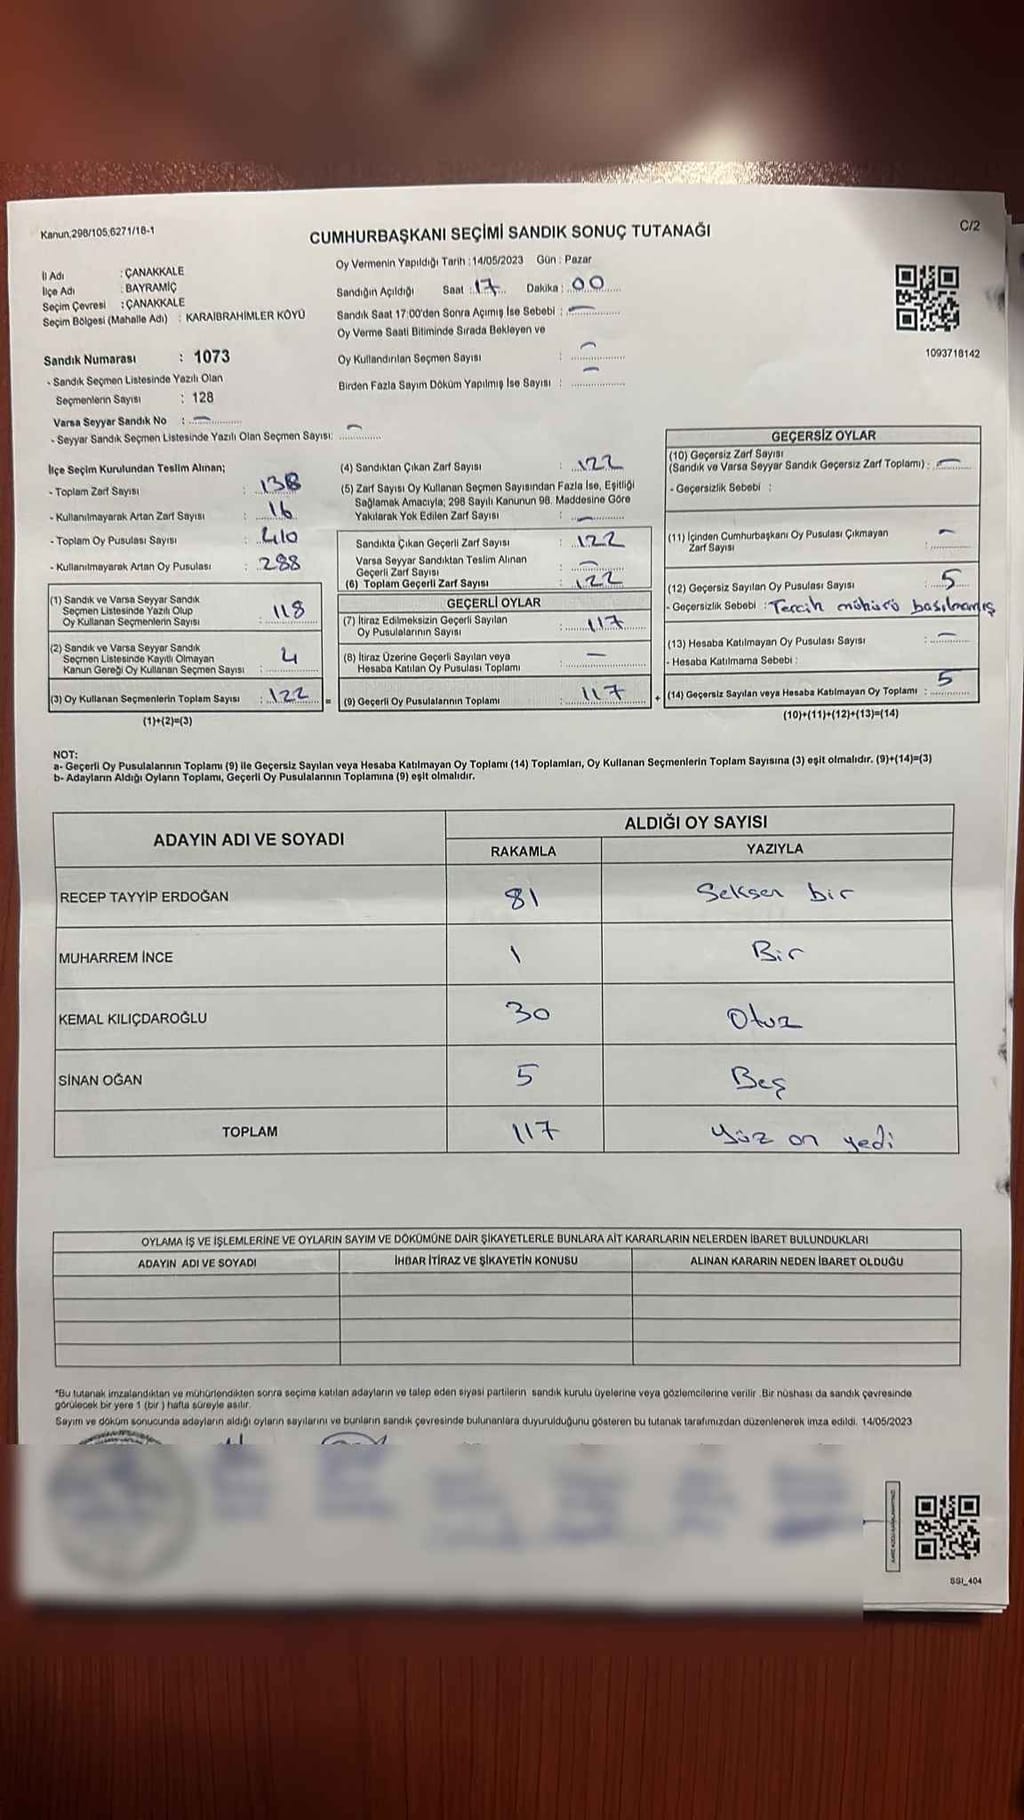 Kanun,298/105,6271/18-1
C/2
CUMHURBAŞKANI SEÇİMİ SANDIK SONUÇ TUTANAĞI
İl Adı : ÇANAKKALE
İlçe Adı : BAYRAMİÇ
Seçim Çevresi : ÇANAKKALE
Seçim Bölgesi (Mahalle Adı) : KARAİBRAHİMLER KÖYÜ
Oy Vermenin Yapıldığı Tarih : 14/05/2023 Gün : Pazar
Sandığın Açıldığı Saat : 17 Dakika : 00
Sandık Saat 17:00'den Sonra Açımış İse Sebebi : —
Oy Verme Saati Bitiminde Sırada Bekleyen ve
Oy Kullandırılan Seçmen Sayısı : —
Birden Fazla Sayım Döküm Yapılmış İse Sayısı : —
1093718142
Sandık Numarası : 1073
- Sandık Seçmen Listesinde Yazılı Olan
Seçmenlerin Sayısı : 128
Varsa Seyyar Sandık No : —
- Seyyar Sandık Seçmen Listesinde Yazılı Olan Seçmen Sayısı: —
İlçe Seçim Kurulundan Teslim Alınan;
- Toplam Zarf Sayısı : 138
- Kullanılmayarak Artan Zarf Sayısı : 16
- Toplam Oy Pusulası Sayısı : 410
- Kullanılmayarak Artan Oy Pusulası : 288
(1) Sandık ve Varsa Seyyar Sandık
Seçmen Listesinde Yazılı Olup
Oy Kullanan Seçmenlerin Sayısı : 118
(2) Sandık ve Varsa Seyyar Sandık
Seçmen Listesinde Kayıtlı Olmayan
Kanun Gereği Oy Kullanan Seçmen Sayısı : 4
(3) Oy Kullanan Seçmenlerin Toplam Sayısı : 122 =
(1)+(2)=(3)
(4) Sandıktan Çıkan Zarf Sayısı : 122
(5) Zarf Sayısı Oy Kullanan Seçmen Sayısından Fazla İse, Eşitliği
Sağlamak Amacıyla; 298 Sayılı Kanunun 98. Maddesine Göre
Yakılarak Yok Edilen Zarf Sayısı : —
Sandıkta Çıkan Geçerli Zarf Sayısı : 122
Varsa Seyyar Sandıktan Teslim Alınan
Geçerli Zarf Sayısı : —
(6) Toplam Geçerli Zarf Sayısı : 122
GEÇERLİ OYLAR
(7) İtiraz Edilmeksizin Geçerli Sayılan
Oy Pusulalarının Sayısı : 117
(8) İtiraz Üzerine Geçerli Sayılan veya
Hesaba Katılan Oy Pusulası Toplamı : —
(9) Geçerli Oy Pusulalarının Toplamı : 117 +
GEÇERSİZ OYLAR
(10) Geçersiz Zarf Sayısı
(Sandık ve Varsa Seyyar Sandık Geçersiz Zarf Toplamı) : —
- Geçersizlik Sebebi :
(11) İçinden Cumhurbaşkanı Oy Pusulası Çıkmayan
Zarf Sayısı : —
(12) Geçersiz Sayılan Oy Pusulası Sayısı : 5
- Geçersizlik Sebebi : Tercih mühürü basılmamış
(13) Hesaba Katılmayan Oy Pusulası Sayısı : —
- Hesaba Katılmama Sebebi :
(14) Geçersiz Sayılan veya Hesaba Katılmayan Oy Toplamı : 5
(10)+(11)+(12)+(13)=(14)
NOT:
a- Geçerli Oy Pusulalarının Toplamı (9) ile Geçersiz Sayılan veya Hesaba Katılmayan Oy Toplamı (14) Toplamları, Oy Kullanan Seçmenlerin Toplam Sayısına (3) eşit olmalıdır. (9)+(14)=(3)
b- Adayların Aldığı Oyların Toplamı, Geçerli Oy Pusulalarının Toplamına (9) eşit olmalıdır.
ADAYIN ADI VE SOYADI ALDIĞI OY SAYISI
RAKAMLA YAZIYLA
RECEP TAYYİP ERDOĞAN 81 Seksen bir
MUHARREM İNCE 1 Bir
KEMAL KILIÇDAROĞLU 30 Otuz
SİNAN OĞAN 5 Beş
TOPLAM 117 Yüz on yedi
OYLAMA İŞ VE İŞLEMLERİNE VE OYLARIN SAYIM VE DÖKÜMÜNE DAİR ŞİKAYETLERLE BUNLARA AİT KARARLARIN NELERDEN İBARET BULUNDUKLARI
ADAYIN ADI VE SOYADI İHBAR İTİRAZ VE ŞİKAYETİN KONUSU ALINAN KARARIN NEDEN İBARET OLDUĞU
*Bu tutanak imzalandıktan ve mühürlendikten sonra seçime katılan adayların ve talep eden siyasi partilerin sandık kurulu üyelerine veya gözlemcilerine verilir .Bir nüshası da sandık çevresinde
görülecek bir yere 1 (bir ) hafta süreyle asılır.
Sayım ve döküm sonucunda adayların aldığı oyların sayılarını ve bunların sandık çevresinde bulunanlara duyurulduğunu gösteren bu tutanak tarafımızdan düzenlenerek imza edildi. 14/05/2023
SSI_404